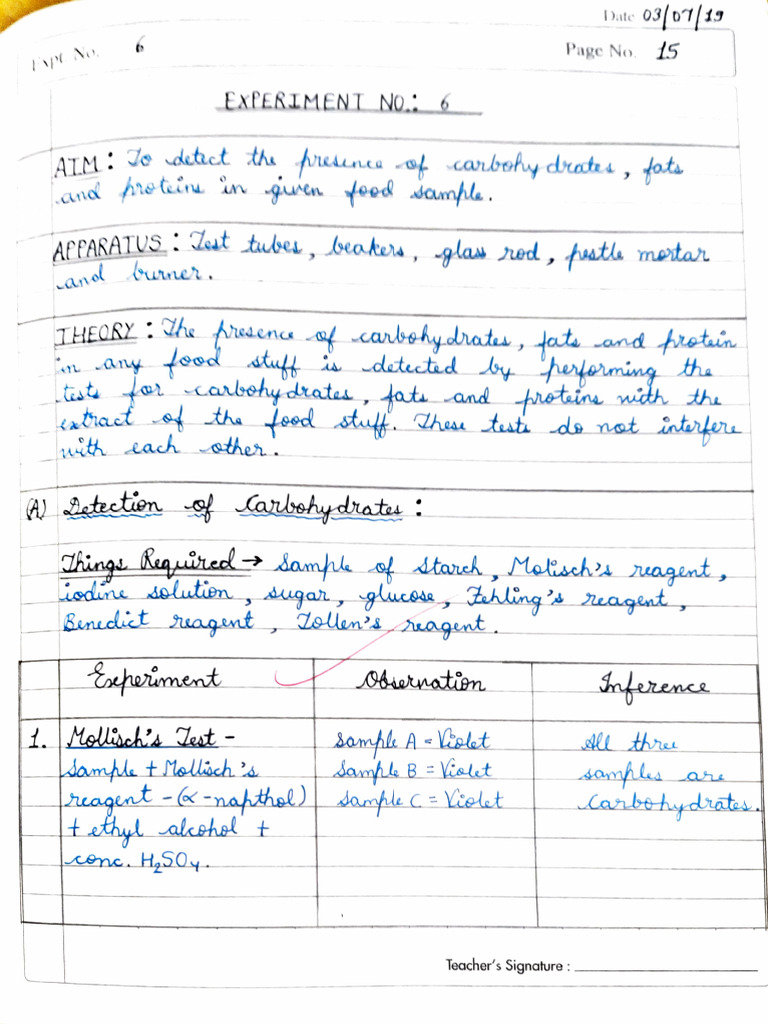 Date 03/07/19
Expt No. 6
Page No. 15
EXPERIMENT NO.: 6
AIM : To detect the presence of carbohydrates, fats
and proteins in given food sample.
APPARATUS : Test tubes, beakers, glass rod, pestle mortar
and burner.
THEORY : The presence of carbohydrates, fats and protein
in any food stuff is detected by performing the
tests for carbohydrates, fats and proteins with the
extract of the food stuff. These tests do not interfere
with each other.
(A) Detection of Carbohydrates :
Things Required → Sample of Starch, Molisch's reagent,
iodine solution, sugar, glucose, Fehling's reagent,
Benedict reagent, Tollen's reagent.
Experiment Observation Inference
1. Mollisch's Test - Sample A = Violet All three
Sample + Mollisch's Sample B = Violet samples are
reagent - (α - napthol) Sample C = Violet Carbohydrates.
+ ethyl alcohol +
conc. H₂SO₄.
Teacher's Signature :